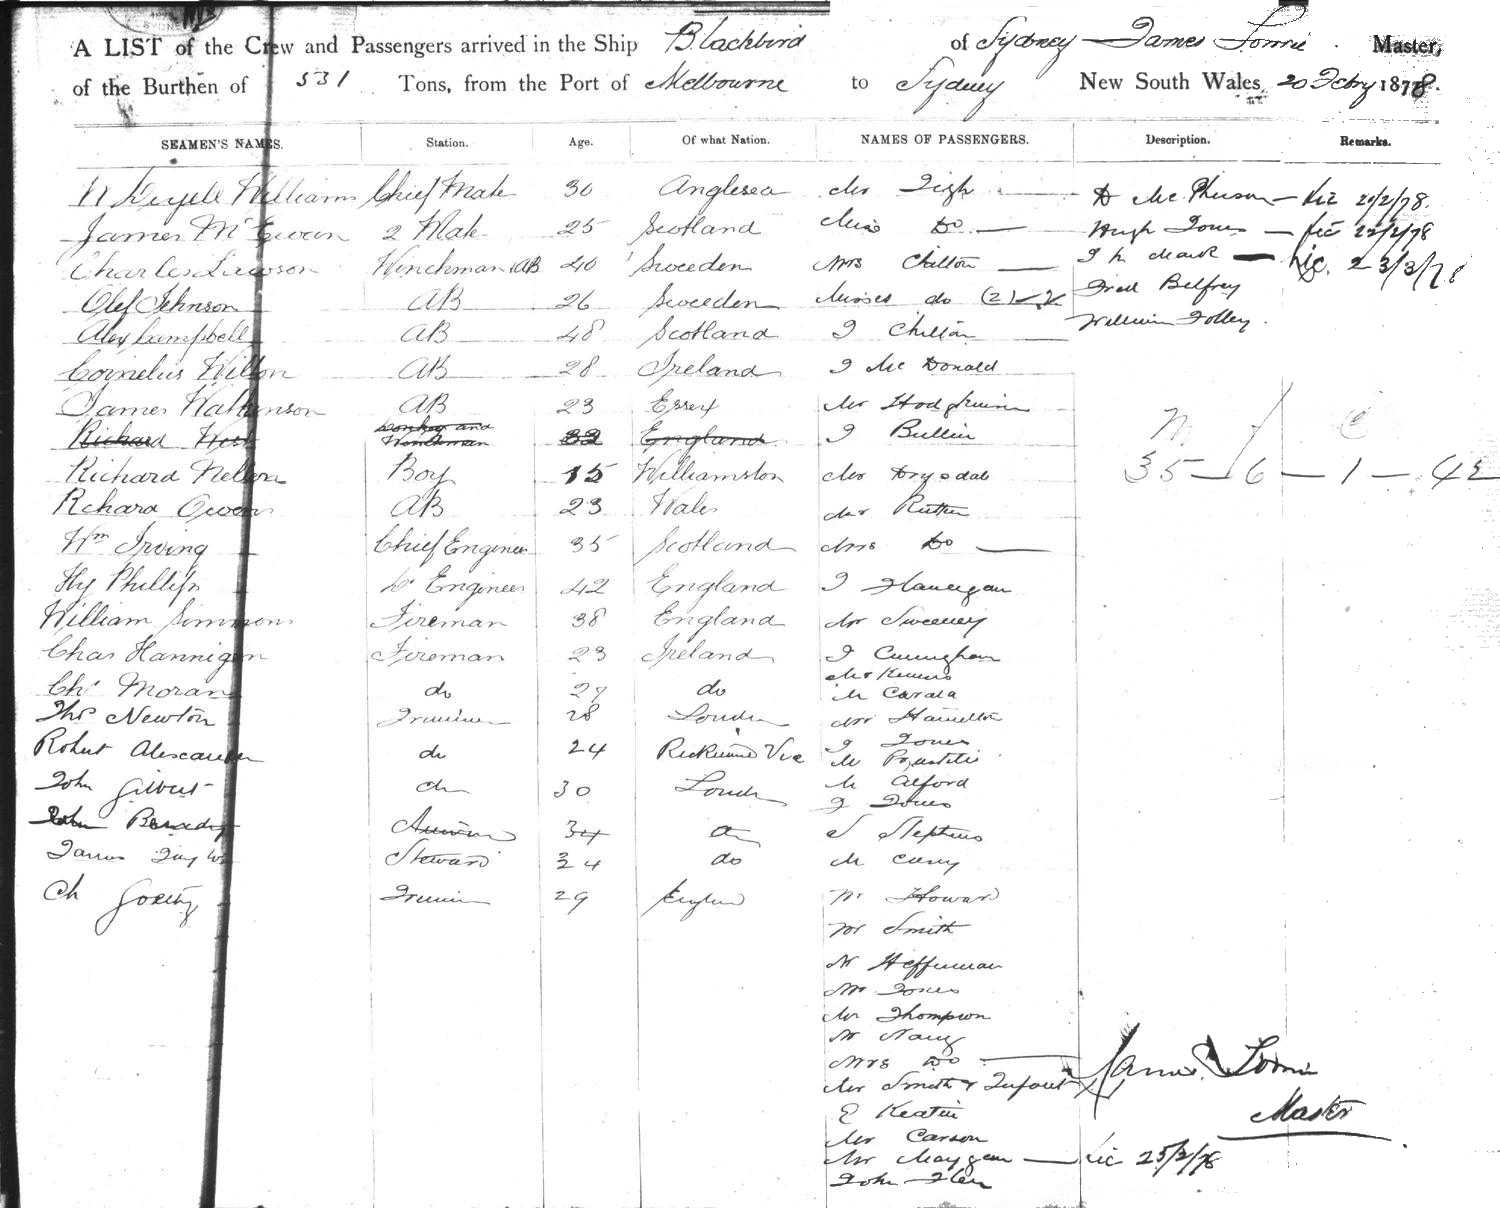 A LIST of the Crew and Passengers arrived in the Ship Blackbird of Sydney James Lorrie Master,
of the Burthen of 531 Tons, from the Port of Melbourne to Sydney New South Wales, 20 Febry 1878.
SEAMEN'S NAMES. Station. Age. Of what Nation. NAMES OF PASSENGERS. Description. Remarks.
Williams Chief Mate 30 Anglesea Mr Tigh D McPherson 21/2/78.
James McEwan 2 Mate 25 Scotland Miss Do Hugh Jones 22/2/78
Charles Lawson Winchman AB 40 Sweeden Mrs Chilton 23/3/78
Olef Johnson AB 26 Sweeden Misses do (2) Fred Belfrey
Alex Campbell AB 48 Scotland J Chilton William Folley.
Cornelius Wilton AB 28 Ireland J McDonald
James Watkinson AB 23 Essex Mr Hodgkinson
Richard Donkey and Winchman 32 England J Bullin
Richard Nelson Boy 15 Williamston Mr Drysdale 35 — 6 — 1 — 42
Richard Owens AB 23 Wales Mr Rutter
Wm Irving Chief Engineer 35 Scotland Mrs Do
Hy Phillips 2d Engineer 42 England J Flanegan
William Simmons Fireman 38 England Mr Sweeney
Chas Hannigan Fireman 23 Ireland J Cunningham
Chs Moran do 27 do M Carala
Thos Newton Trimmer 28 London Mr Hamilton
J Jones
Robert Alexander do 24 Vic
John Gilbert do 30 London M Alford
J Jones
John 34 do S Stephens
James Taylor Steward 24 do M Curry
Ch Trimmer 29 England Mr Howard
Mr Smith
Mr Heffernan
Mr Jones
Mr Thompson
Mr Nany
Mrs Do James Lorrie
Mr Smith & Infant
E Keatin Master
Mr Carson
Mr Maygan 25/2/78
John